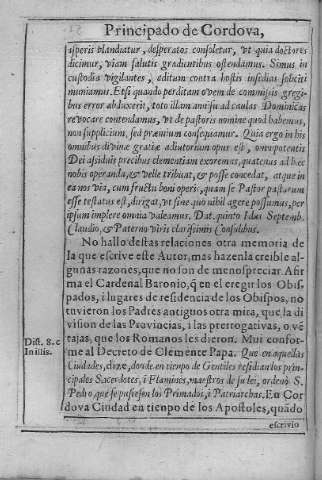 Principado de Cordova,
asperis blandiatur, desperatos consoletur, ut quia doctores
dicimur, viam salutis gradientibus ostendamus. Simus in
custodia vigilantes, aditum contra hostis insidias soliciti
muniamus. Et si quando perditam ovem de commissis gregi
bus error abduxerit, toto illam annisu ad caulas Dominicas
revocare contendamus, ut de pastoris nomine quod habemus,
non supplicium, sed præmium consequamur. Quia ergo in his
omnibus divinæ gratiæ adiutorium opus est, omnipotentis
Dei assiduis precibus clementiam exoremus, quatenus ad hæc
nobis operanda, & velle tribuat, & posse concedat, atque in
ea nos via, cum fructu boni operis, quam se Pastor pastorum
esse testatus est, dirigat, ut sine quo nihil agere possumus, per
ipsum implere omnia valeamus. Dat. quinto Idus Septemb.
Claudio, & Paterno viris clarissimis Consulibus.
No hallo destas relaciones otra memoria de
la que escrive este Autor, mas hazenla creible al
gunas razones, que no son de menospreciar. Afir
ma el Cardenal Baronio, q̃ en el eregir los Obis-
pados, i lugares de residencia de los Obispos, no
tuvieron los Padres antiguos otra mira, que la di
vision de las Provincias, i las prerrogativas, o vẽ
tajas, que los Romanos les dieron. Mui confor-
me al Decreto de Clemente Papa. Que en aquellas
Dist. 8. c
In illis.
Ciudades, dize, donde en tiempo de Gentiles residian los prin-
cipales Sacerdotes, i Flamines, maestros de su lei, ordenò S.
Pedro, que se pusiesen los Primados, i Patriarchas. En Cor
dova Ciudad en tienpo de los Apostoles, quãdo
escrivio